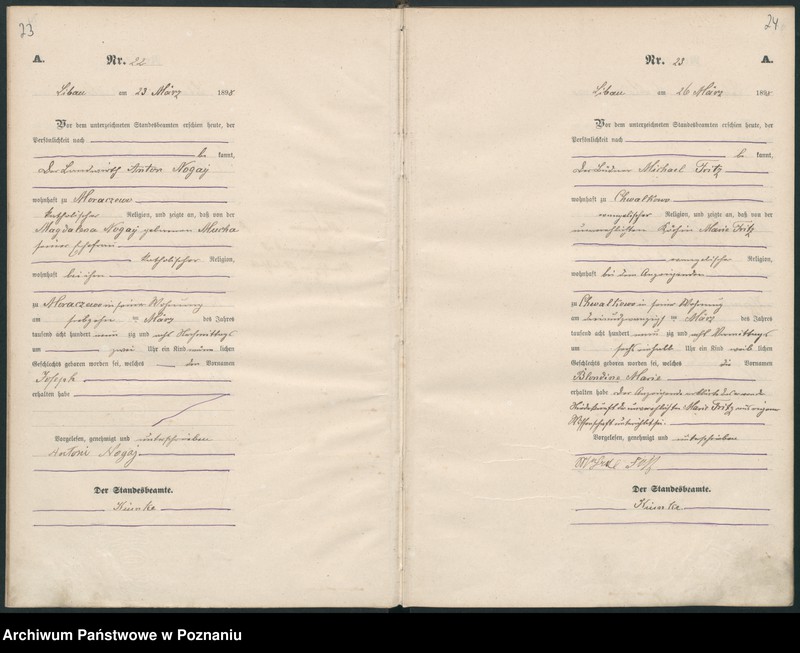 23
A.
Nr. 22
Libau am 23 März 1898
Vor dem unterzeichneten Standesbeamten erschien heute, der
Persönlichkeit nach
be kannt,
der Landwirth Anton Nogaj
wohnhaft zu Moraczewo
katholischer Religion, und zeigte an, daß von der
Magdalena Nogaj geborenen Mucha
seiner Ehefrau
katholischer Religion,
wohnhaft bei ihm
zu Moraczewo in seiner Wohnung
am siebzehn ten März des Jahres
tausend acht hundert neun zig und acht Nachmittags
um zwei Uhr ein Kind männ lichen
Geschlechts geboren worden sei, welches den Vornamen
Joseph
erhalten habe
Vorgelesen, genehmigt und unterschrieben
Antoni Nogaj
Der Standesbeamte.
24
Nr. 23
A.
Libau am 26 März 1898
Vor dem unterzeichneten Standesbeamten erschien heute, der
Persönlichkeit nach
be kannt,
der Büdner Michael Fritz
wohnhaft zu Chwalkowo
evangelischer Religion, und zeigte an, daß von der
unverehelichten Köchin Marie Fritz
evangelischer Religion,
wohnhaft bei dem Anzeigenden
zu Chwalkowo in seiner Wohnung
am dreiundzwanzigsten März des Jahres
tausend acht hundert neun zig und acht Vormittags
um sechseinhalb Uhr ein Kind weib lichen
Geschlechts geboren worden sei, welches die Vornamen
Blondine Marie
erhalten habe der Anzeigende erklärte daß er von der
Niederkunft der unverehelichten Marie Fritz aus eigener
Wissenschaft unterrichtet sei.
Vorgelesen, genehmigt und unterschrieben
Der Standesbeamte.
Archiwum Państwowe w Poznaniu